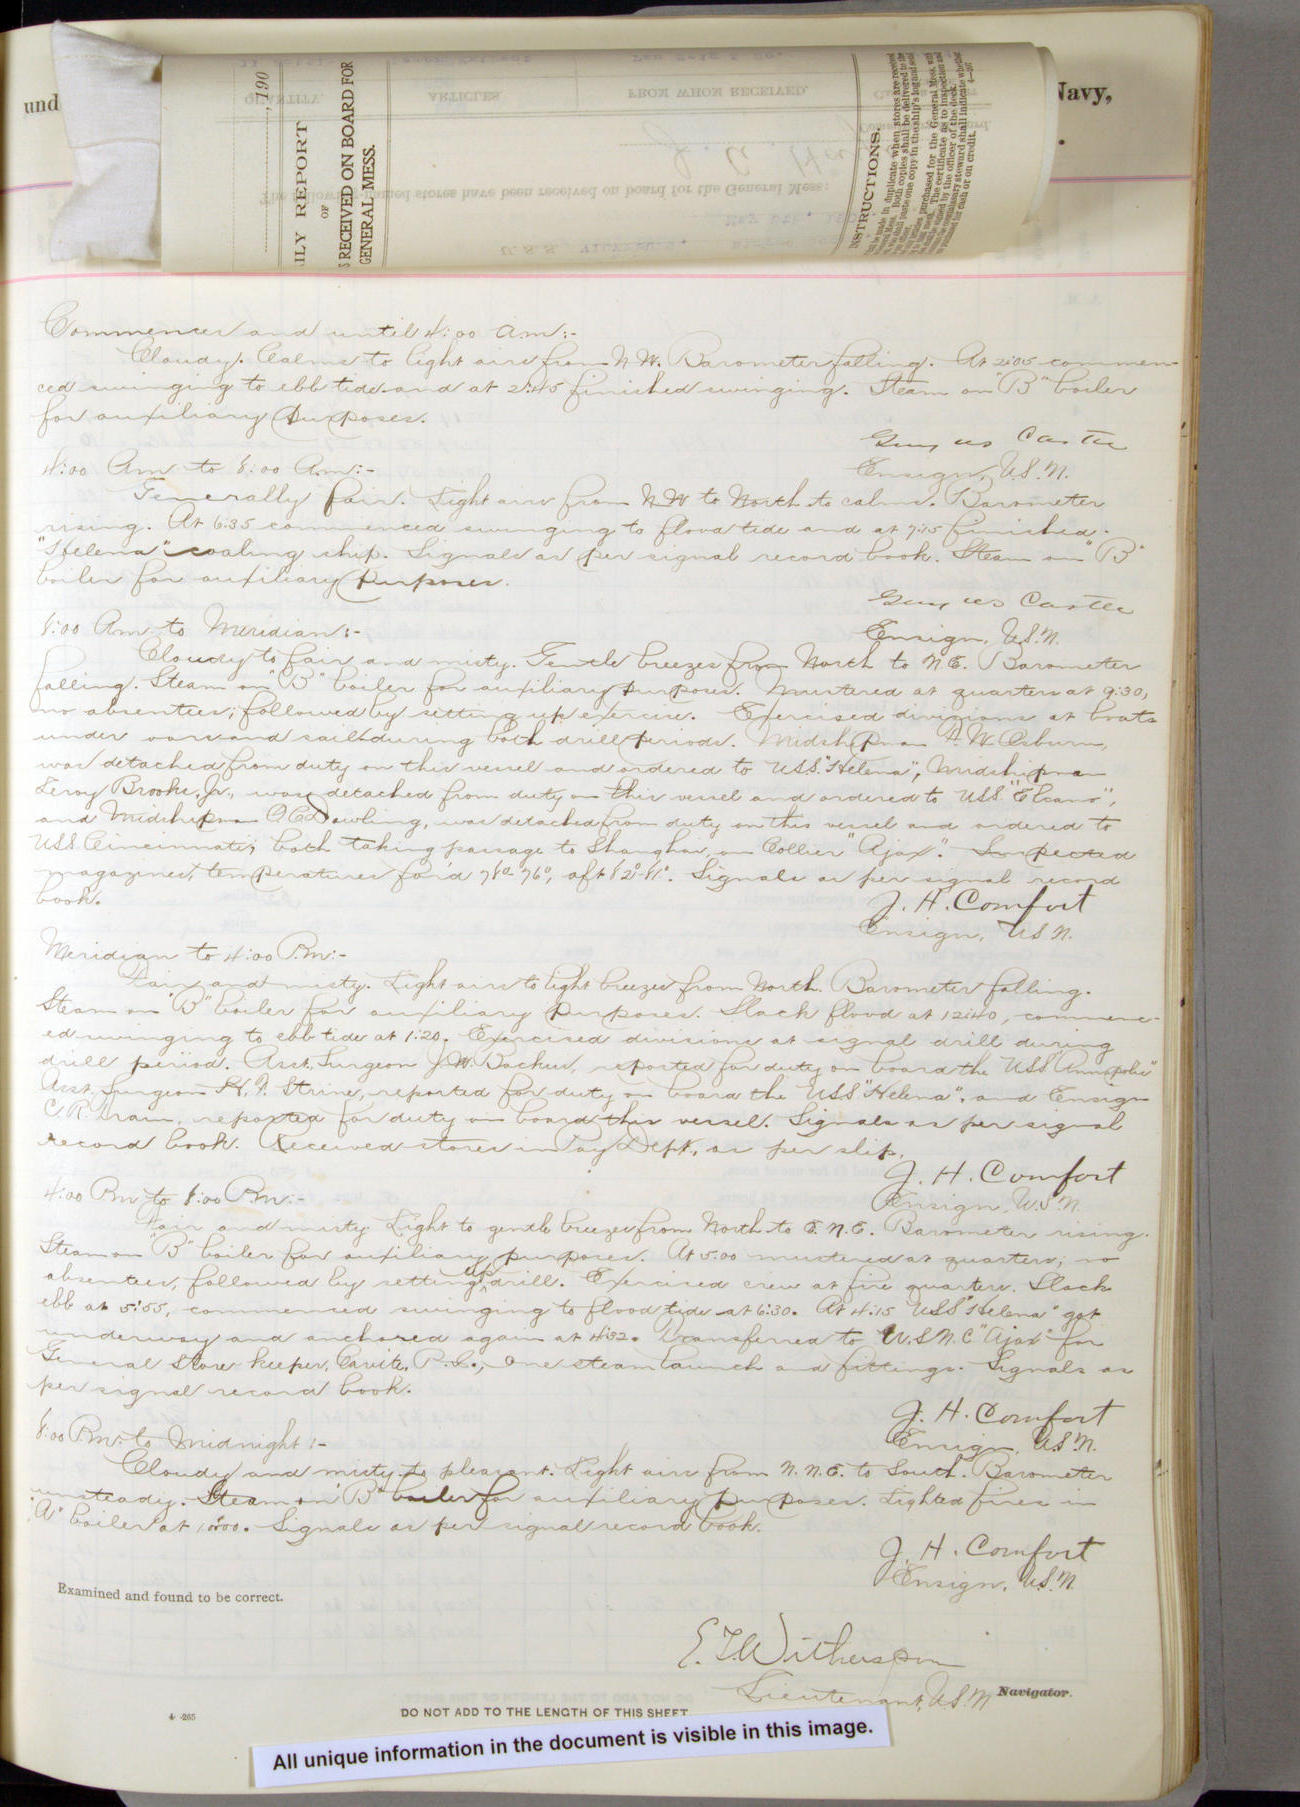 und
Navy,
, 190
ILY REPORT
OF
S RECEIVED ON BOARD FOR
GENERAL MESS.
QUANTITY.
ARTICLES.
FROM WHOM RECEIVED.
The following named stores have been received on board for the General Mess:
INSTRUCTIONS.
Commences and until 4:00 a.m:-
Cloudy. Calms to light airs from N.W. Barometer falling. At 2:05 commen-
ced swinging to ebb tide and at 2:45 finished swinging. Steam on "B" boiler
for auxiliary purposes.
Guy W S Castle
Ensign, U.S.N.
4:00 Am to 8:00 Am:-
Generally fair. Light airs from N.W to North to calms. Barometer
rising. At 6:35 commenced swinging to flood tide and at 7:15 finished.
"Helena" coaling ship. Signals as per signal record book. Steam on "B"
boiler for auxiliary purposes.
Guy W S Castle
Ensign, U.S.N.
8:00 Am to Meridian:-
Cloudy to fair and misty. Gentle breezes from North to N.E. Barometer
falling. Steam on "B" boiler for auxiliary purposes. Mustered at quarters at 9:30,
no absentees; followed by setting up exercise. Exercised divisions at boats
under oars and sails during both drill periods. Midshipman A.W. Osburn,
was detached from duty on this vessel and ordered to USS. "Helena", Midshipman
Leroy Brooks, Jr., was detached from duty on this vessel and ordered to USS "Elcano",
and Midshipman O C Dowling, was detached from duty on this vessel and ordered to
USS Cincinnati; both taking passage to Shanghai, on Collier "Ajax". Inspected
magazines, temperatures for'd 78°-76°, aft 82°-81°. Signals as per signal record
book.
J. H. Comfort
Ensign, U S N.
Meridian to 4:00 P.m:-
Fair and misty. Light airs to light breezes from North. Barometer falling.
Steam on "B" boiler for auxiliary purposes. Slack flood at 12:40, commenc-
ed swinging to ebb tide at 1:20. Exercised divisions at signal drill during
drill period. Asst. Surgeon J.W. Backus, reported for duty on board the USS "Annapolis"
Asst. Surgeon H. A. Strine, reported for duty on board the USS "Helena", and Ensign
C. R. Train, reported for duty on board this vessel. Signals as per signal
record book. Received stores in Pay Dept, as per slip.
J. H. Comfort
Ensign, U.S.N.
4:00 Pm to 8:00 P.m:-
Fair and misty. Light to gentle breezes from North to E.N.E. Barometer rising.
Steam on "B" boiler for auxiliary purposes. At 5:00 mustered at quarters; no
absentees, followed by setting up drill. Exercised crew at fire quarters. Slack
ebb at 5:55, commenced swinging to flood tide at 6:30. At 4:15 USS "Helena" got
underway and anchored again at 4:32. Transferred to U.S.N.C "Ajax" for
General Store keeper, Cavite, P.I., One steam launch and fittings. Signals as
per signal record book.
J. H. Comfort
Ensign, U.S.N.
8:00 P.m. to Midnight :-
Cloudy and misty to pleasant. Light airs from N.N.E. to South. Barometer
unsteady. Steam on "B" boiler for auxiliary purposes. Lighted fires in
"A" boiler at 10:00. Signals as per signal record book.
J. H. Comfort
Ensign, U.S.N.
Examined and found to be correct.
E. T. Witherspoon
Lieutenant, U.S.N Navigator.
4-265
DO NOT ADD TO THE LENGTH OF THIS SHEET
All unique information in the document is visible in this image.